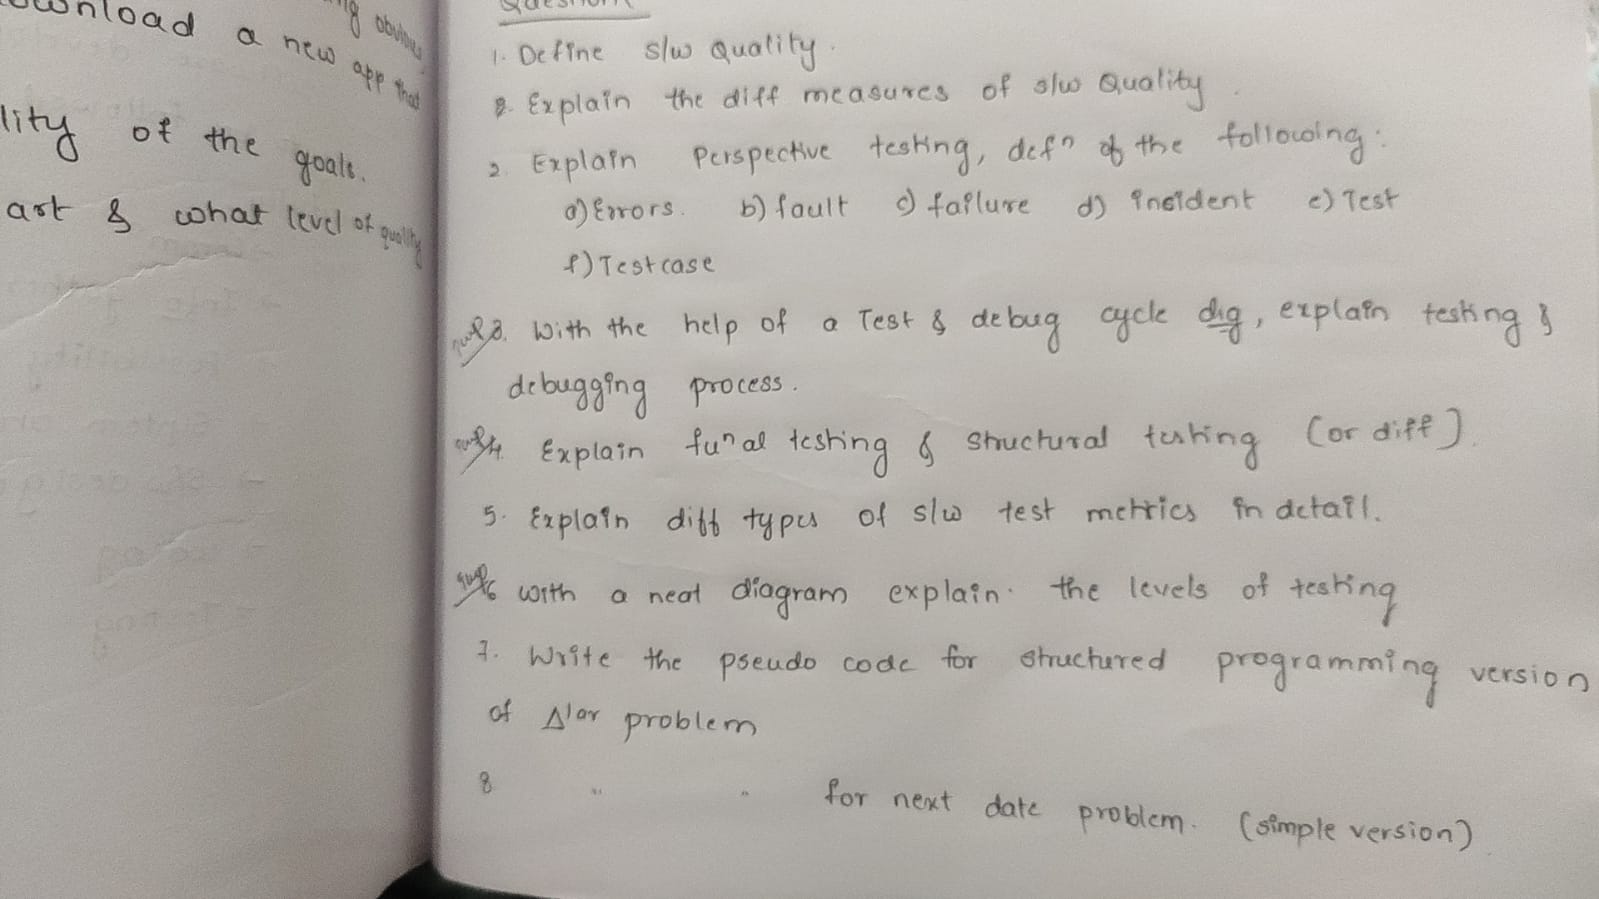 download a new app that
lity of the goals.
art & what level of quality
Questions
1. Define s/w Quality.
2. Explain the diff measures of s/w Quality.
2. Explain Perspective testing, defn of the following:
a) Errors. b) fault c) failure d) incident e) Test
f) Testcase
3. With the help of a Test & debug cycle dig, explain testing &
debugging process.
4. Explain funal testing & structural testing (or diff).
5. Explain diff types of s/w test metrics in detail.
6 with a neat diagram explain. the levels of testing
7. Write the pseudo code for structured programming version
of Δlar problem
8 " " for next date problem. (simple version)